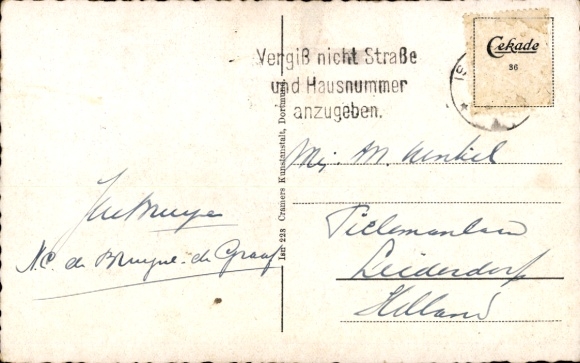 Vergiß nicht Straße
und Hausnummer
anzugeben.
Cekade
36
Cramers Kunstanstalt, Dortmund.
228
M. Menkel
Tielemanlaan
Leiderdorp
Holland
N.C. de Bruyne-de Graaf